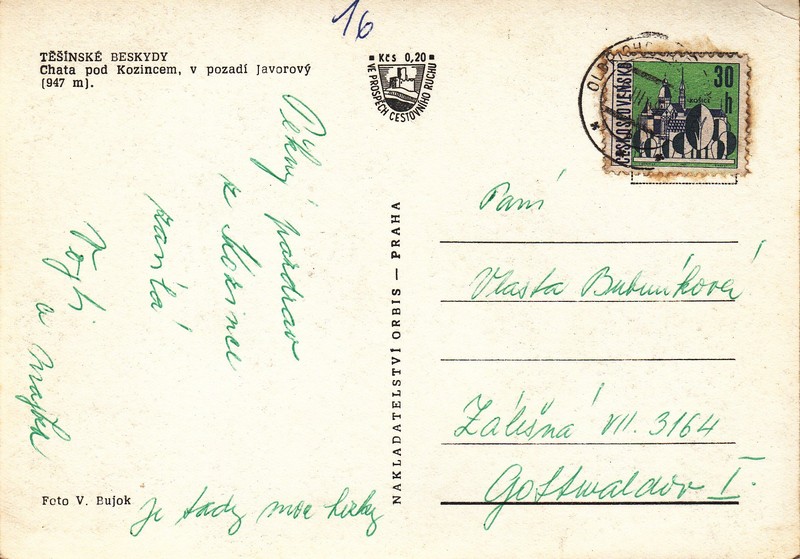 16
TĚŠÍNSKÉ BESKYDY
Chata pod Kozincem, v pozadí Javorový
(947 m).
Kčs 0,20
VE PROSPĚCH CESTOVNÍHO RUCHU
ČESKOSLOVENSKO
30
h
KOŠICE
Pěkný pozdrav
z Kozince
a Majka
Foto V. Bujok
je tady moc hezky
NAKLADATELSTVÍ ORBIS — PRAHA
Paní
Vlasta Bubníková
Zálešná VII. 3164
Gottwaldov I.